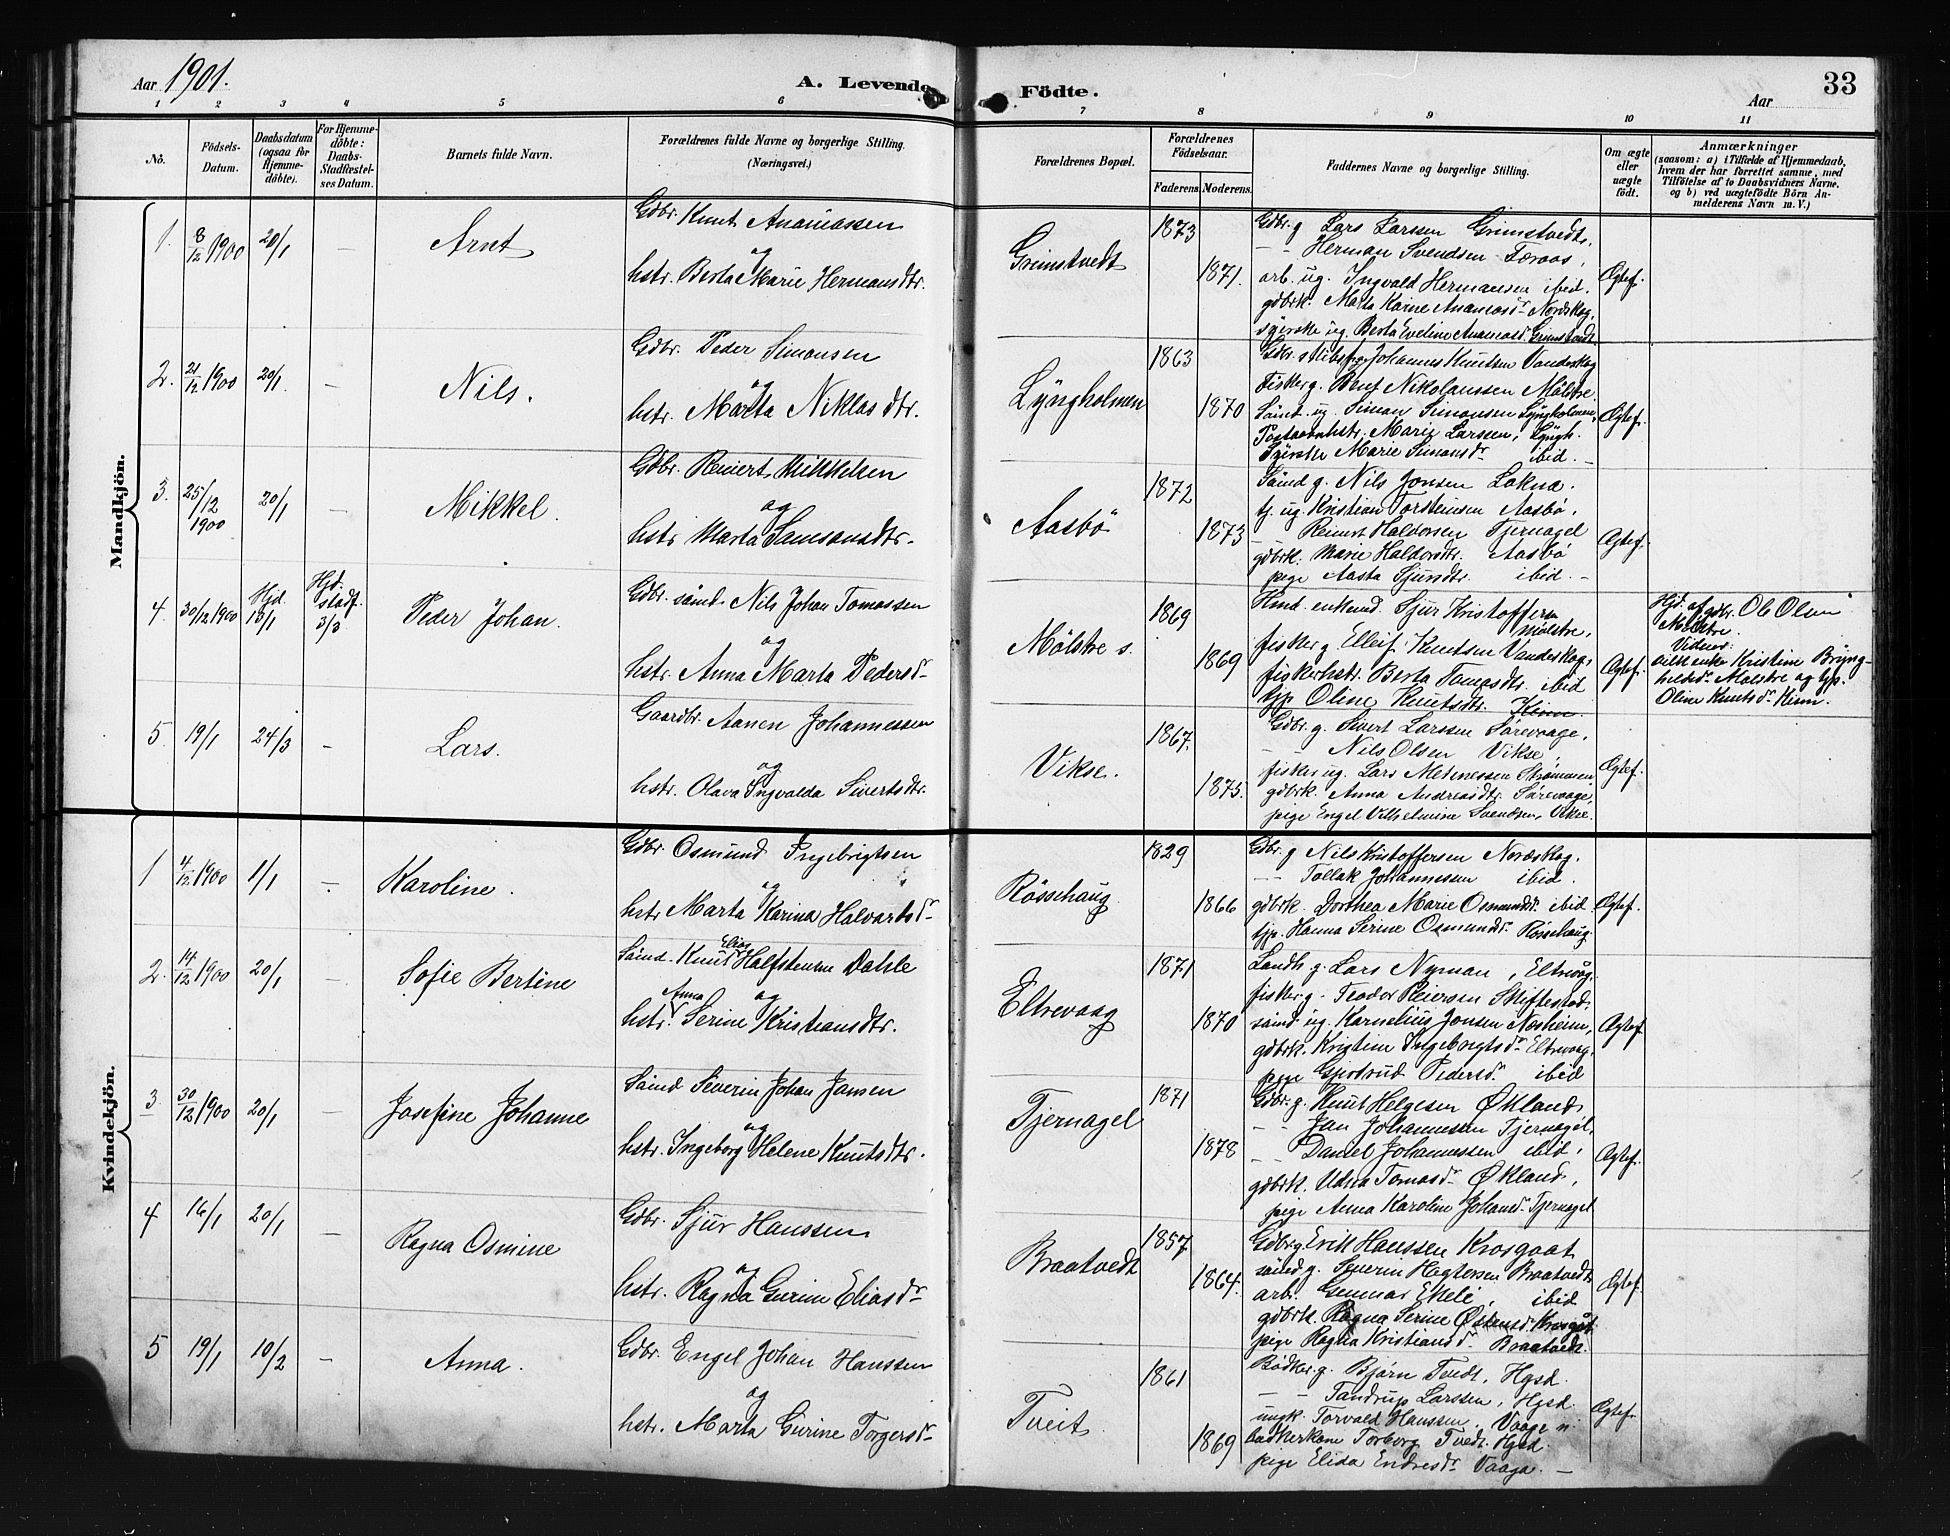 Aar 1901.
A. Levende Födte.
Aar
33
1 2 3 4 5 6 7 8 9 10 11
No.
Födsels-Datum.
Daabsdatum (ogsaa for Hjemme-döbte).
For Hjemme-döbte: Daabs-Stadfæstel-ses Datum.
Barnets fulde Navn.
Forældrenes fulde Navne og borgerlige Stilling.
(Næringsvei.)
Forældrenes Bopæl.
Forældrenes Födselsaar.
Faderens. Moderens.
Faddernes Navne og borgerlige Stilling.
Om ægte eller uægte födt.
Anmærkninger
(saasom: a) i Tilfælde af Hjemmedaab,
hvem der har forrettet samme, med
Tilföielse af to Daabsvidners Navne,
og b) ved uægtefödte Börn An-
melderens Navn m. V.)
Mandkjön.
1. 8/12 1900 20/1 — Arnt
Gdbr. Knut Ananiassen
og
hstr. Berta Marie Hermansdtr.
Grimstvedt
1873
1871.
Gdbr. g Lars Larssen Grimstvedt,
— — Herman Svendsen Foraas,
arb. ug. Ingvald Hermansen ibid.
gdbrk. Marta Karine Ananiasdr Nordskog,
syerske ug. Berta Eveline Ananiasd. Grimstvedt
Ægtef.
2. 21/12 1900 20/1. — Nils.
Gdbr. Peder Simonsen
og
hstr. Marta Niklasdtr.
Lyngholmen
1863
1870
Johannes Knutsen Vandaskog
Fisker g. Bent Nikolaussen Mölstre.
Sömd. ug. Simon Simonsen Lyngholmen,
Marie Larssen, Lyngh.
Syerske Marie Simonsdr ibid. —
Ægtef.
3. 25/12 1900 20/1 Mikkel.
Gdbr. Reinert Mikkelsen
og
hstr Marta Samsonsdtr.
Aasbö
1872
1873
Sömd g. Nils Jonsen Lokna.
tj. ug. Kristian Torsteinsen Aasbö,
— Reinert Haldorsen Tjernagel
gdbrk. Marie Haldorsdtr. Aasbö
pige Aasta Sjursdtr. ibid. —
Ægtef.
4. 30/12 1900 Hjd. 13/1 Hjd. stadf. 3/3 Peder Johan.
Gdbr. sömd. Nils Johan Tomassen
og
hstr. Anna Marta Pedersdr
Mölstre s.
1869
1869
enkemd. Sjur Kristoffersen Mölstre,
fisker g Elleif Knutsen Vandaskog,
fiskerhstr. Berta Tomasdtr. ibid
tjp Oline Knutsdtr. Kinn.
Ægtef.
Hjd. af gdbr. Ole Olsen
Mölstre.
Vidner:
enke Kristine Bryng-
hildsdr Mölstre og tjp.
Oline Knutsdr Kinn.
5. 19/1 24/3 — Lars.
Gaardbr. Aanen Johannessen
og
hstr. Olava Ingvalda Sivertsdtr.
Vikse.
1867.
1875.
Gdbr. g. Sivert Larssen Sörevaage,
— — Nils Olsen Vikse,
fisker ug. Lars Strömmen
gdbrk. Anna Andreasdtr. Sörevaage,
pige Engel Vilhelmine Svendsen, Vikse.
Ægtef.
Kvindekjön.
1 4/12 1900 1/1 — Karoline.
Gdbr. Osmund Ingebrigtsen
og
hstr. Marta Karina Halvorsdr
Rösschaug
1829
1866
Gdbr. g Nils Kristoffersen Nordskog.
— — Tollak Johannessen ibid.
gdbrk. Dorthea Marie Osmundsdr. ibid
tjp. Hanna Serine Osmundsdr Rösschaug.
Ægtef.
2. 14/12 1900 20/1 — Sofie Bertine
Sömd. Knut Elias Halfstensen Dahle
og
hstr. Anna Serine Kristiansdtr.
Eltrevaag
1871
1870
Landh. g. Lars Nyman, Eltrevåg,
fisker g. Teodor Reiersen Skiftestad,
sömd ug. Kornelius Jonsen Næsheim,
gdbrk. Kristine Ingebregtsdr Eltrevaag,
pige Gjertrud Pedersdr ibid
Ægtef.
3. 30/12 1900 20/1 — Josefine Johanne
Sömd Severin Johan Jansen
og
hstr. Ingeborg Helene Knutsdtr.
Tjernagel
1871
1878
Gdbr. g. Knut Helgesen Økland,
— — Jan Johannessen Tjernagel,
— — Daniel Johannessen ibid,
gdbrk. Udna Tomasdr Økland,
pige Anna Karoline Johansdr Tjernagel
Ægtef.
4 16/1 20/1 — Ragna Osmine
Gdbr. Sjur Hanssen
og
hstr. Ragna Gurine Eliasdr
Braatvedt
1857.
1864.
Gdbr g Erik Hanssen Krosgaat
sömd g. Severin Hagtorsen Braatvedt
arb. Gunnar Ekele, ibid
gdbrk. Ragna Serine Östensdr Krosgåt
pige Ragna Kristiansdr Braatvedt.
Ægtef.
5 19/1 10/2 — Anna.
Gdbr. Engel Johan Hanssen
og
hstr. Marta Gurine Torgersdr
Tveit
1861
1869
Bödker g. Björn Tvedt, Hgsd.
— — Tandrup Larssen, Hgsd.
ungk. Torvald Hanssen, Vaage n
bödkerkone Torborg Tvedt. Hgsd
pige Elida Endresdr Vaage. —
Ægtef.